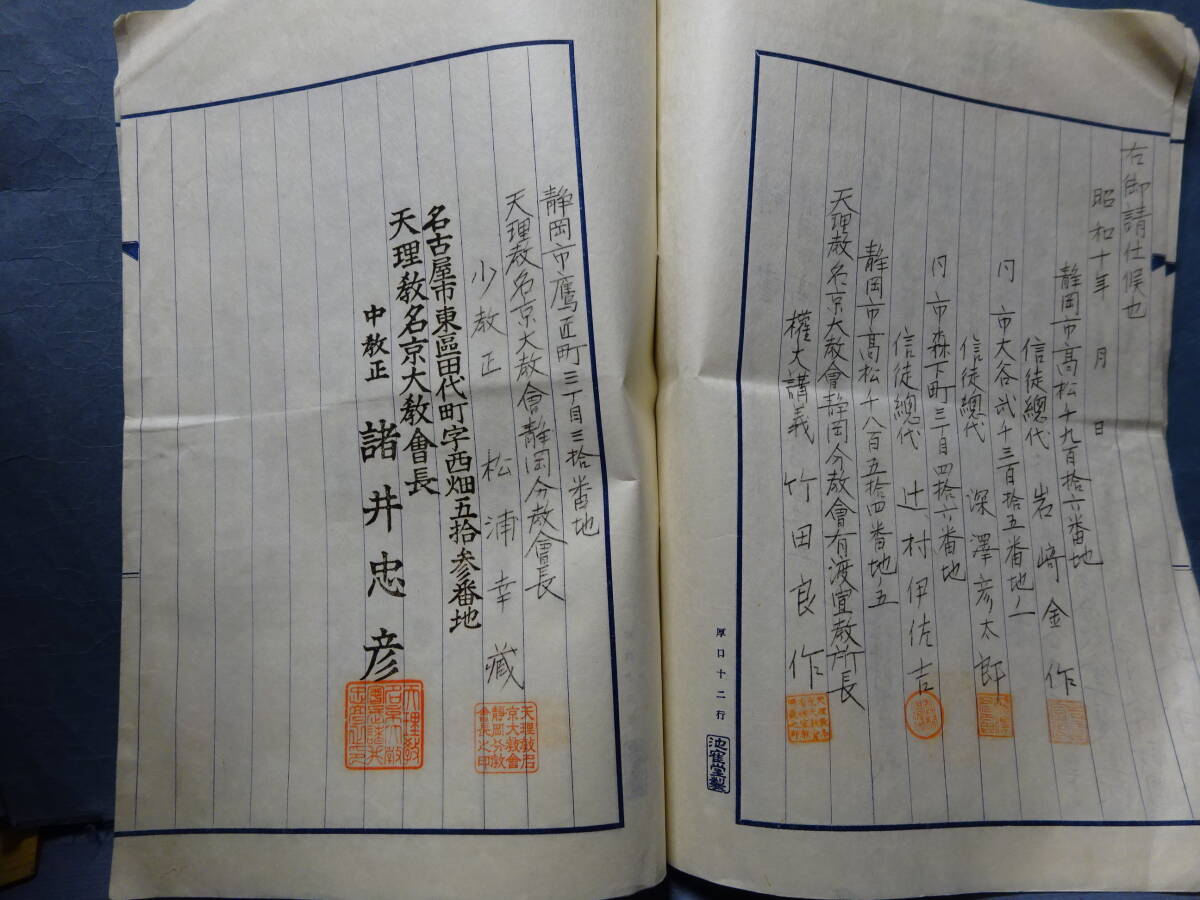 右御請仕候也
昭和十年　月　日
静岡市高松千九百拾六番地
信徒總代　岩﨑金作
仝市大谷弐千三百拾五番地ノ一
信徒總代　深澤彦太郎
仝市森下町三丁目四拾六番地
信徒總代　辻村伊佐吉
静岡市高松千八百五拾四番地ノ五
天理教名京大教會静岡分教會有渡宣教所長
權大講義　竹田良作
厚口十二行
池雀堂製
静岡市鷹匠町三丁目三拾番地
天理教名京大教會静岡分教會長
少教正　松浦幸藏
天理教名京大教會静岡分教會長之印
名古屋市東區田代町字西畑五拾参番地
天理教名京大教會長
中教正　諸井忠彦